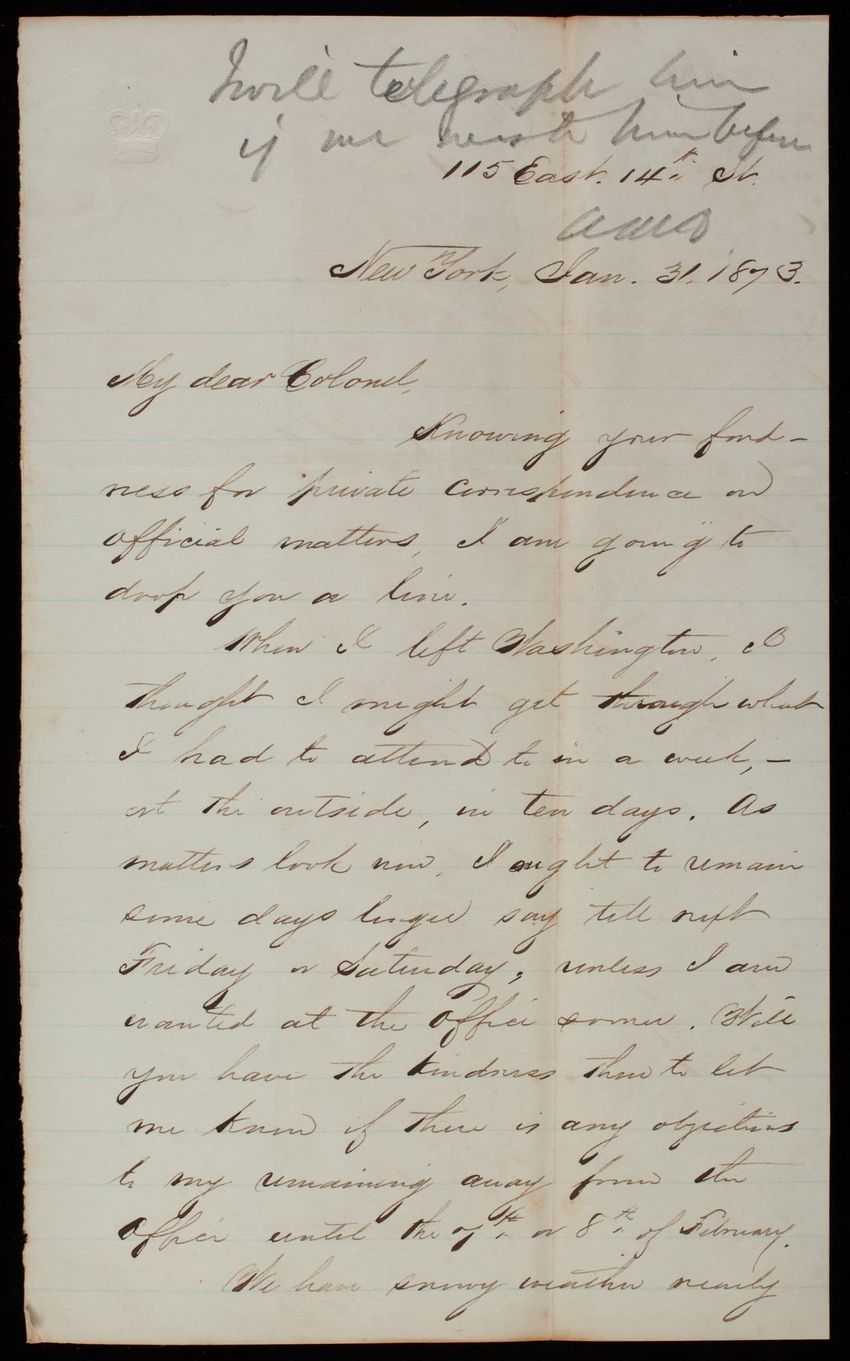 I will telegraph him
if we want him before
115 East. 14th St.
New York, Jan. 31. 1873.
My dear Colonel,
Knowing your fond-
ness for private correspondence on
official matters, I am going to
drop you a line.
When I left Washington, I
thought I might get through what
I had to attend to in a week, -
at the outside, in ten days. As
matters look now, I ought to remain
some days longer say till next
Friday or Saturday, unless I am
wanted at the Office sooner. Will
you have the kindness then to let
me know if there is any objections
to my remaining away from the
Office until the 7th or 8th of February.
We have snowy weather nearly